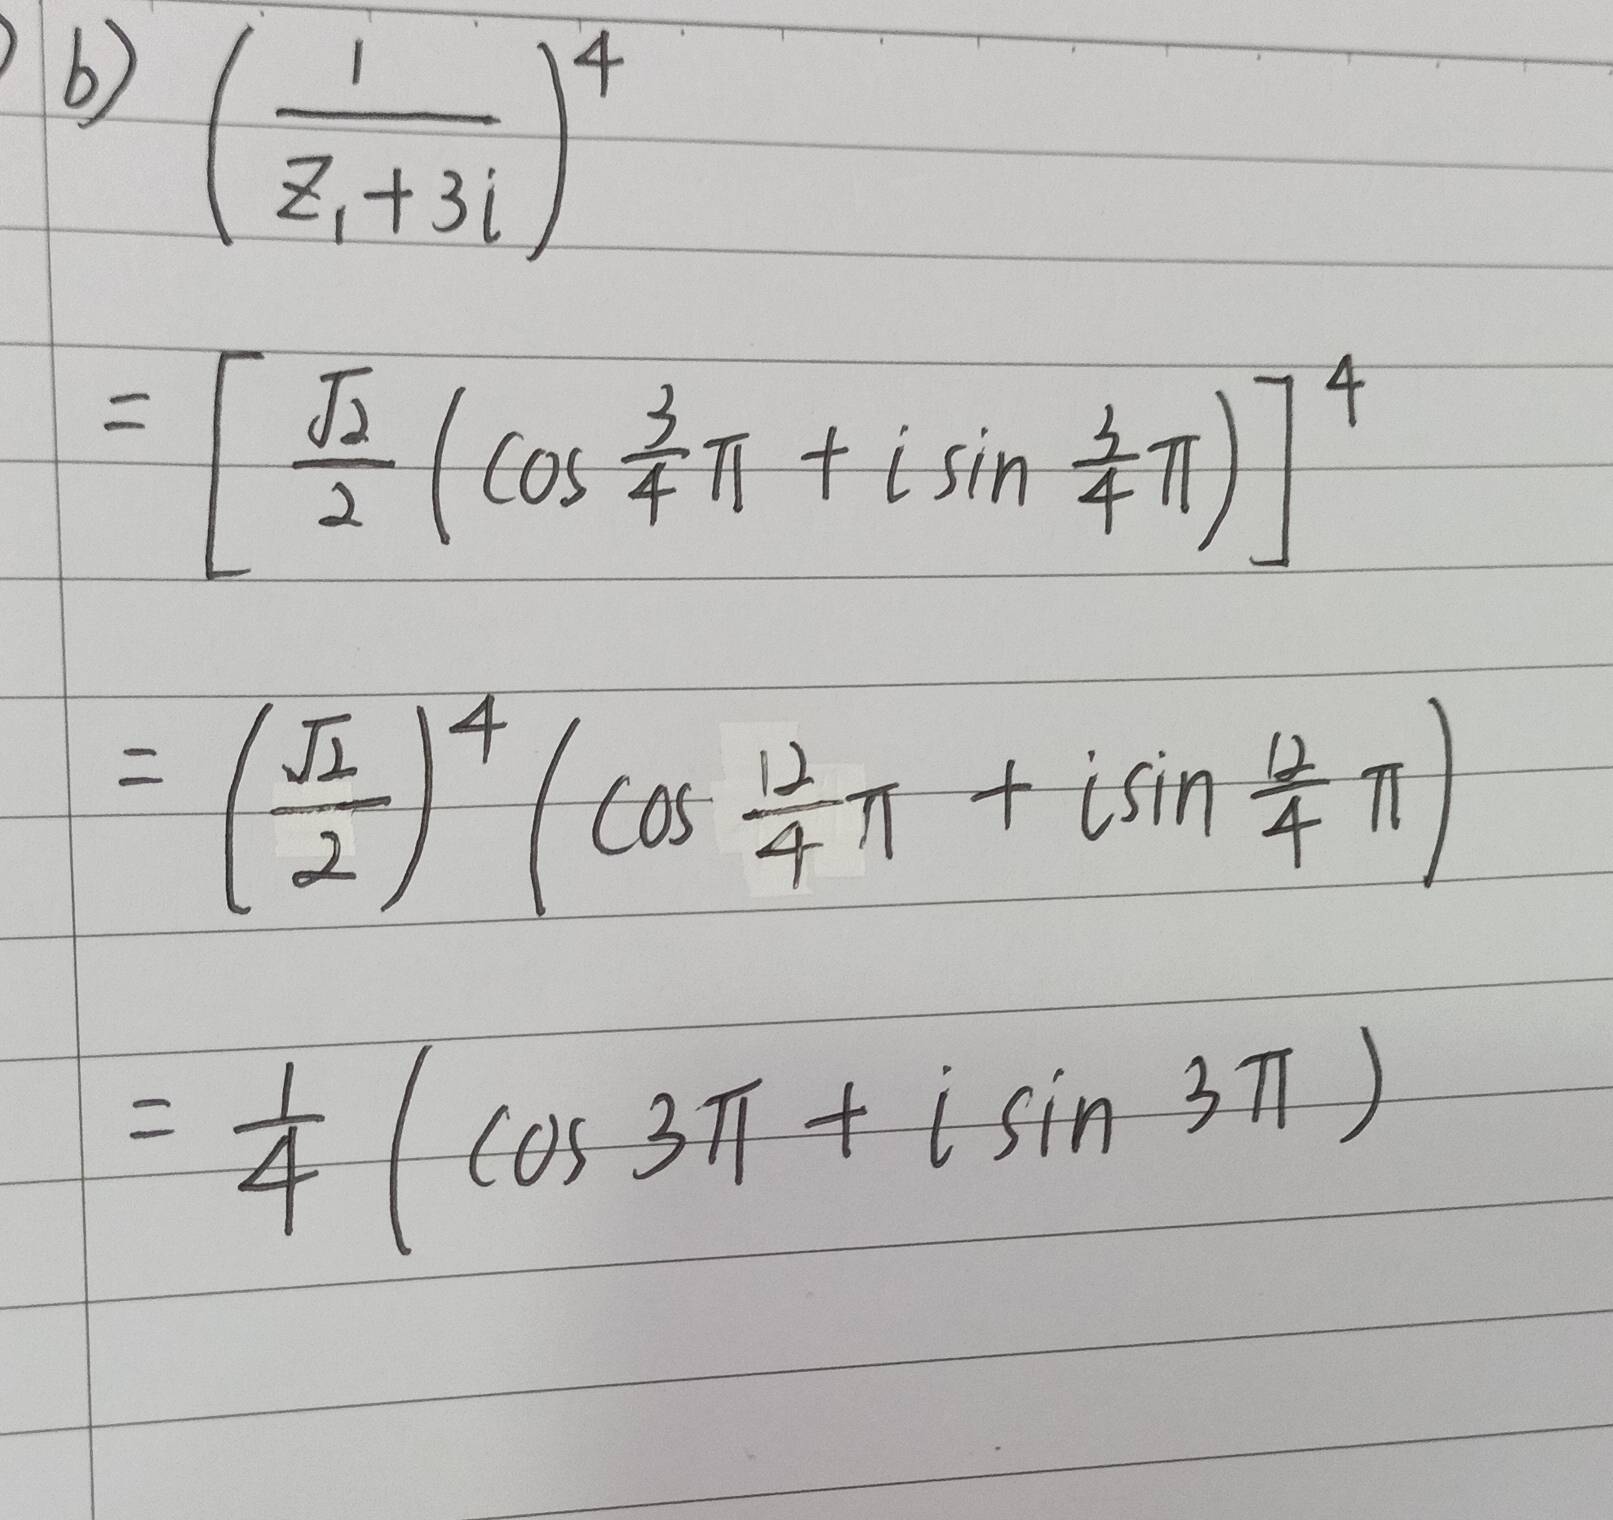 b) (1/(z₁+3i))⁴
= [√2/2 (cos 3/4 π + i sin 3/4 π)]⁴
= (√2/2)⁴ (cos 12/4 π + i sin 12/4 π)
= 1/4 (cos 3π + i sin 3π)